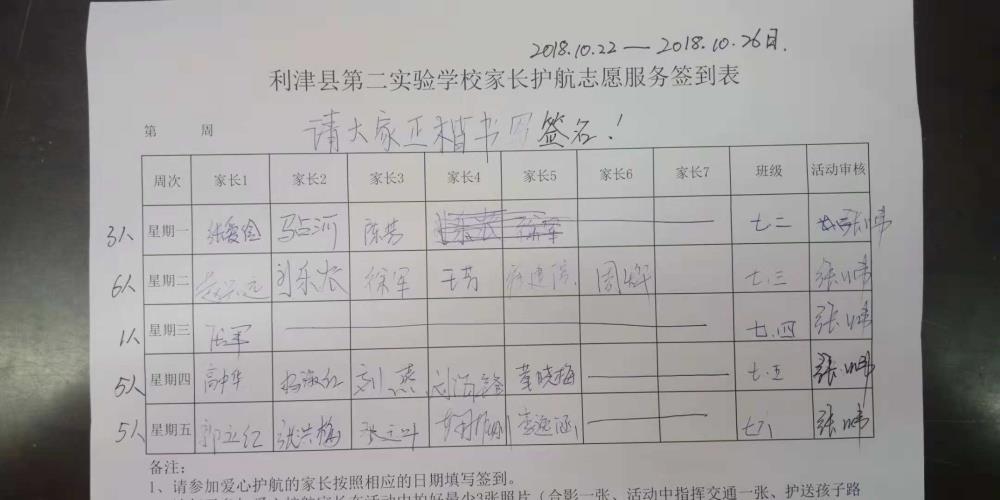 2018.10.22 — 2018.10.26日.
利津县第二实验学校家长护航志愿服务签到表
第 周 请大家正楷书写签名!
周次 家长1 家长2 家长3 家长4 家长5 家长6 家长7 班级 活动审核
3人 星期一 张爱俭 马占河 陈芳 七二
6人 星期二 刘乐农 徐军 王芳 周烨 七.三 张小韦
1人 星期三 张军 七.四 张小韦
5人 星期四 高中华 杨淑红 刘燕 刘海隆 黄晓梅 七.五 张小韦
5人 星期五 郭立红 张洪梅 李逸涵 张小韦
备注:
1、请参加爱心护航的家长按照相应的日期填写签到。
家长在活动中拍好最少3张照片（合影一张、活动中指挥交通一张、护送孩子路